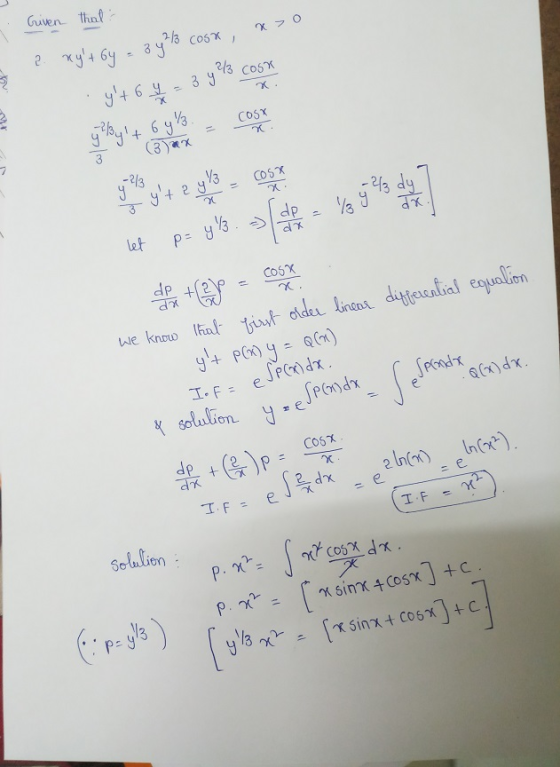 Given that:-
2. xy' + 6y = 3y^{2/3} cosx, x > 0
. y' + 6 y/x = 3 y^{2/3} cosx/x.
y^{-2/3}/3 y' + 6y^{1/3}/(3)x = cosx/x.
y^{-2/3}/3 y' + 2 y^{1/3}/x = cosx/x.
let p = y^{1/3}. ⇒ [dp/dx = 1/3 y^{-2/3} dy/dx]
dp/dx + (2/x)p = cosx/x.
we know that first order linear differential equation
y' + p(x) y = Q(x)
I.F = e^{∫p(x)dx}.
& solution y • e^{∫p(x)dx} = ∫ e^{∫p(x)dx} . Q(x) dx.
dp/dx + (2/x)p = cosx/x.
I.F = e^{∫ 2/x dx} = e^{2ln(x)} = e^{ln(x²)}.
I.F = x².
solution: p. x² = ∫ x² cosx/x dx.
p. x² = [x sinx + cosx] + c.
(∵ p = y^{1/3}) [y^{1/3} x² = [x sinx + cosx] + c.]